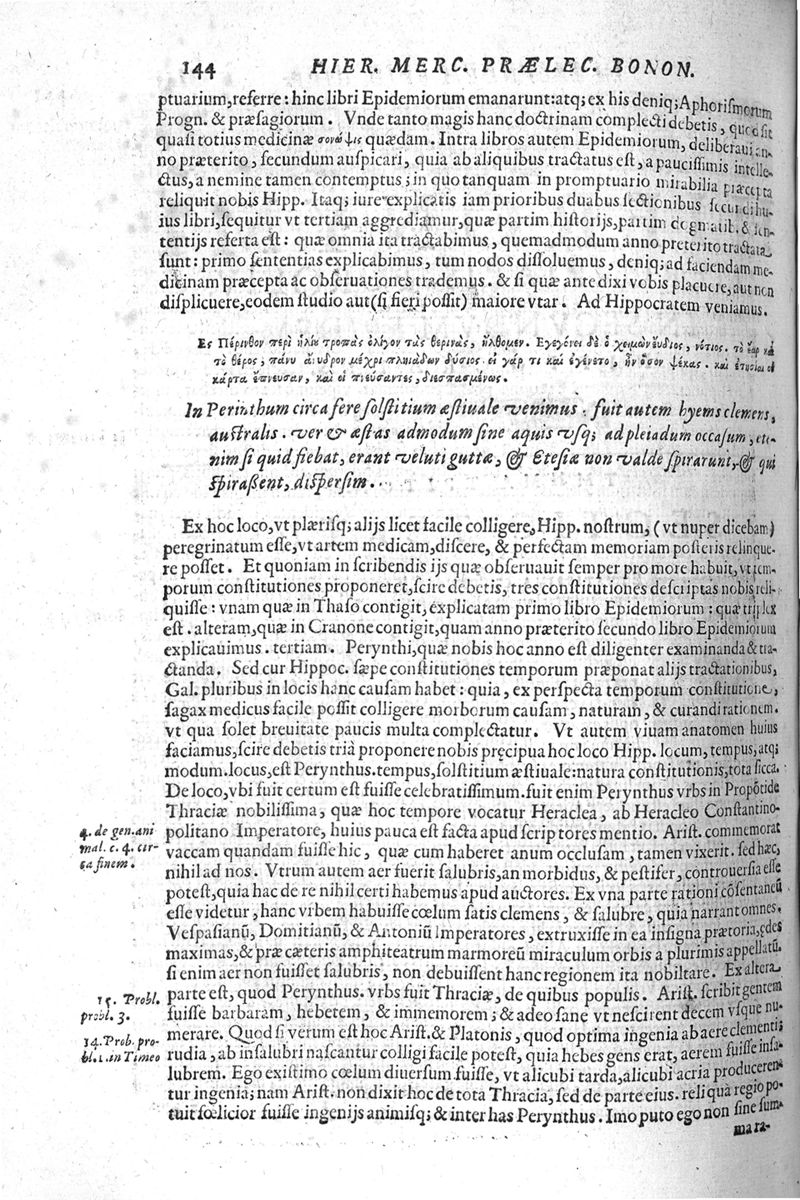 144 HIER. MERC. PRÆLEC. BONON.
ptuarium,referre: hinc libri Epidemiorum emanarunt:atq; ex his deniq;Aphorismorum
Progn. & præsagiorum. Vnde tanto magis hanc doctrinam complecti debetis, quod sit
quasi totius medicinæ σονώψις quædam. Intra libros autem Epidemiorum, deliberaui an-
no præterito, secundum auspicari, quia ab aliquibus tractatus est, a paucissimis intelle-
ctus, a nemine tamen contemptus; in quo tanquam in promptuario mirabilia præcepta
reliquit nobis Hipp. Itaq; iure explicatis iam prioribus duabus sectionibus secundi hu-
ius libri, sequitur vt tertiam aggrediamur,quæ partim historijs,partim dogmatib. & sen-
tentijs referta est: quæ omnia ita tractabimus, quemadmodum anno preterito tractata
sunt: primo sententias explicabimus, tum nodos dissoluemus, deniq; ad faciendam me-
dicinam præcepta ac obseruationes trademus. & si quæ ante dixi vobis placuere, aut non
displicuere, eodem studio aut (si fieri possit) maiore vtar. Ad Hippocratem veniamus.
Ες Πέρινθον περὶ ἡλίυ τροπὰς ὀλίγον τὰς θερινὰς, ἤλθομεν. Εγεγόνει δὲ ὁ χειμὼν ἔυδιος, νότιος. τὸ ἔαρ καὶ
τὸ θέρος, πάνυ ἄνυδρον μέχρι πληιάδων δύσιος. οἱ γάρ τι καὶ ἐγένετο, ἦν ὅσον ψέκας. καὶ ἐτησίαι οὐ
κάρτα ἔπνευσαν, καὶ οἱ πνεύσαντες, διεσπασμένως.
In Perinthum circa fere solstitium æstiuale venimus. fuit autem hyems clemens,
australis. ver & æstas admodum sine aquis vsq; ad pleiadum occasum, ete-
nim si quid fiebat, erant veluti guttæ, & Etesiæ non valde spirarunt, & qui
spirassent, dispersim.
Ex hoc loco, vt plærisq; alijs licet facile colligere, Hipp. nostrum, (vt nuper dicebam)
peregrinatum esse, vt artem medicam, discere, & perfectam memoriam posteris relinque-
re posset. Et quoniam in scribendis ijs quæ obseruauit semper pro more habuit, vt tem-
porum constitutiones proponeret, scire debetis, tres constitutiones descriptas nobis reli-
quisse: vnam quæ in Thaso contigit, explicatam primo libro Epidemiorum: quæ triplex
est. alteram, quæ in Cranone contigit, quam anno præterito secundo libro Epidemiorum
explicauimus. tertiam. Perynthi, quæ nobis hoc anno est diligenter examinanda & tra-
ctanda. Sed cur Hippoc. sæpe constitutiones temporum præponat alijs tractationibus,
Gal. pluribus in locis hanc causam habet: quia, ex perspecta temporum constitutione,
sagax medicus facile possit colligere morborum causam, naturam, & curandi rationem.
vt qua solet breuitate paucis multa complectatur. Vt autem viuam anatomen huius
faciamus, scire debetis tria proponere nobis pręcipua hoc loco Hipp. locum, tempus, atq;
modum. locus, est Perynthus. tempus, solstitium æstiuale: natura constitutionis, tota sicca.
De loco, vbi fuit certum est fuisse celebratissimum. fuit enim Perynthus vrbs in Propõtide
Thraciæ nobilissima, quæ hoc tempore vocatur Heraclea, ab Heracleo Constantino-
politano Imperatore, huius pauca est facta apud scriptores mentio. Arist. commemorat
4. de gen. ani
mal. c. 4. cir-
ca finem.
vaccam quandam fuisse hic, quæ cum haberet anum occlusam, tamen vixerit. sed hæc,
nihil ad nos. Vtrum autem aer fuerit salubris, an morbidus, & pestifer, controuersia esse
potest, quia hac de re nihil certi habemus apud auctores. Ex vna parte rationi cõsentaneũ
esse videtur, hanc vrbem habuisse cœlum satis clemens, & salubre, quia narrant omnes,
Vespasianũ, Domitianũ, & Antoniũ Imperatores, extruxisse in ea insigna prætoria, ędes
maximas, & præ cæteris amphiteatrum marmoreũ miraculum orbis a plurimis appellatũ.
si enim aer non fuisset salubris, non debuissent hanc regionem ita nobiltare. Ex altera
parte est, quod Perynthus. vrbs fuit Thraciæ, de quibus populis. Arist. scribit gentem
15. Probl.
probl. 3.
fuisse barbaram, hebetem, & immemorem; & adeo sane vt nescirent decem vsque nu-
merare. Quod si verum est hoc Arist. & Platonis, quod optima ingenia ab aere clementis
14. Prob. pro-
bl. 1. in Timeo
rudia, ab insalubri nascantur colligi facile potest, quia hebes gens erat, aerem fuisse insa-
lubrem. Ego existimo cœlum diuersum fuisse, vt alicubi tarda, alicubi acria produceren-
tur ingenia; nam Arist. non dixit hoc de tota Thracia, sed de parte eius. reliqua regio po-
tuit fœlicior fuisse ingenijs animisq; & inter has Perynthus. Imo puto ego non sine sum-
mara-